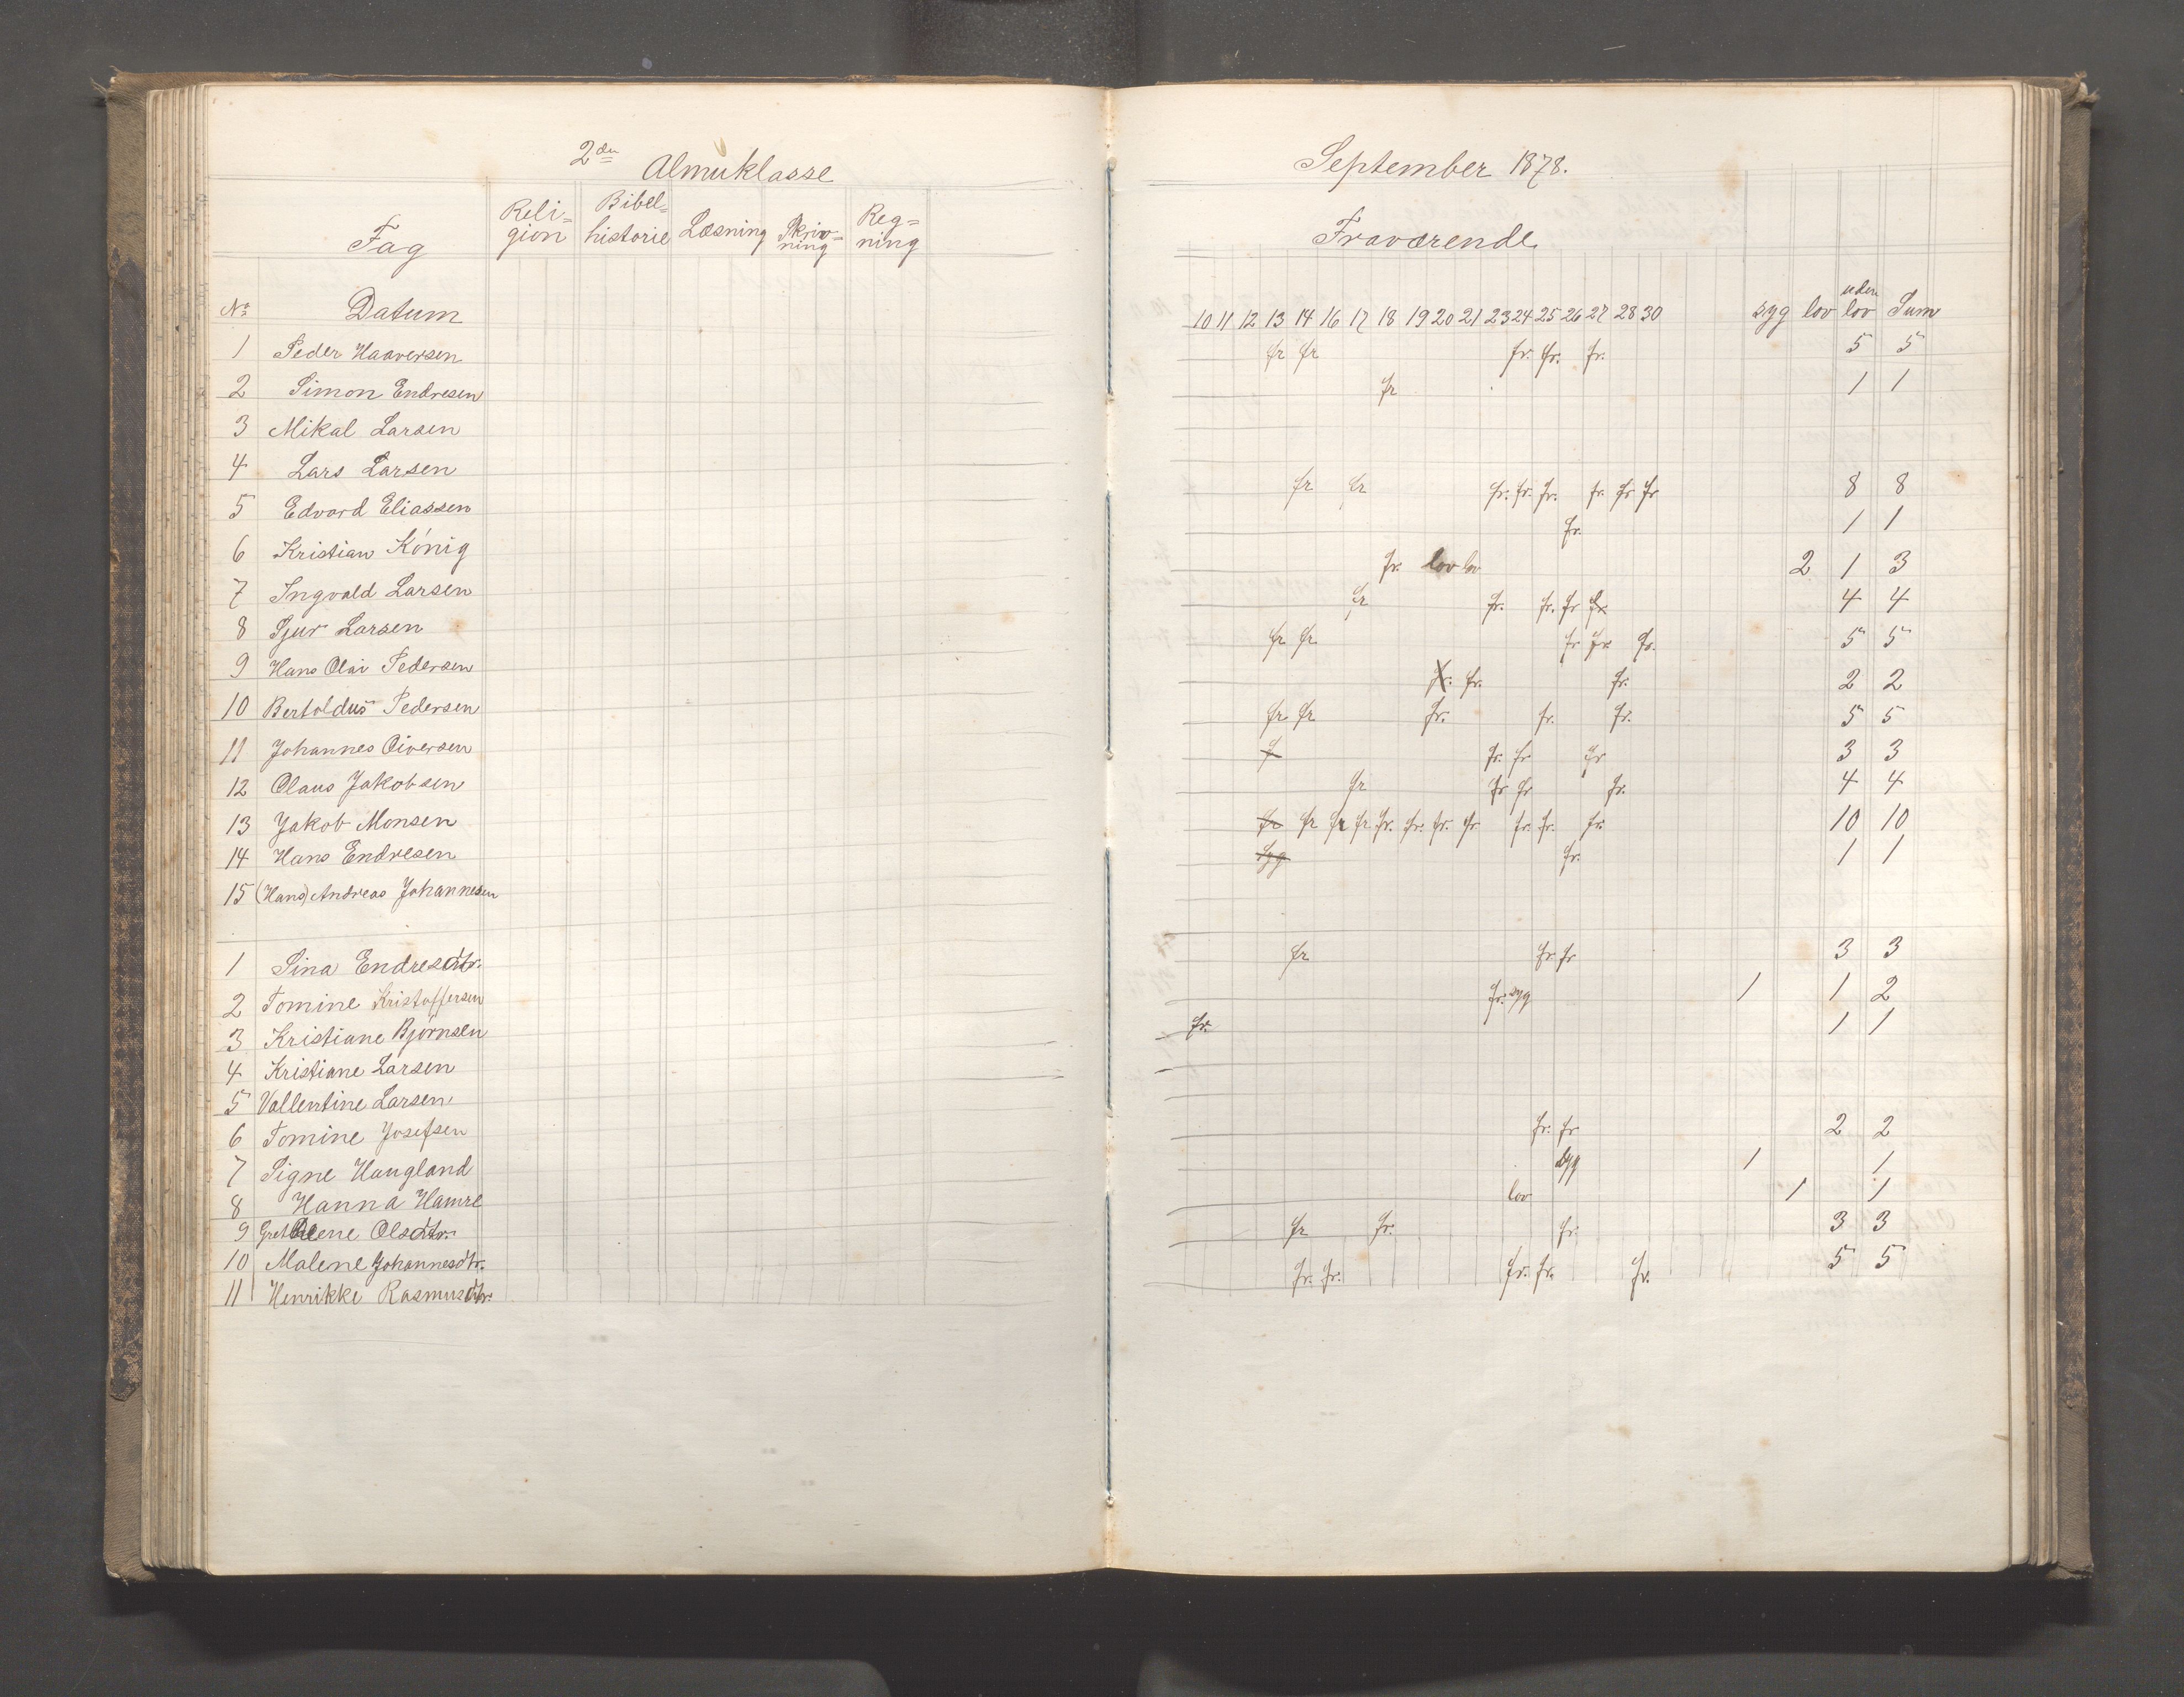 2den Almuklasse
Fag Reli= gion Bibel= historie Læsning Skriv= ning Reg= ning
No Datum
1 Peder Haaversen
2 Simon Endresen
3 Mikal Larsen
4 Lars Larsen
5 Edvard Eliassen
6 Kristian König
7 Ingvald Larsen
8 Sjur Larsen
9 Hans Olai Pedersen
10 Bertoldus Pedersen
11 Johannes Oiversen
12 Olaus Jakobsen
13 Jakob Monsen
14 Hans Endresen
15 (Hans) Andreas Johannesen
1 Sina Endresdtr.
2 Tomine Kristoffersen
3 Kristiane Bjørnsen
4 Kristiane Larsen
5 Vallentine Larsen
6 Tomine Josefsen
7 Signe Haugland
8 Hanna Hamre
9 Grethelene Olsdtr.
10 Malene Johannesdtr.
11 Henrikke Rasmusdtr.
September 1878.
Fraværende
10 11 12 13 14 16 17 18 19 20 21 23 24 25 26 27 28 30 syg lov uden lov Sum
fr fr fr. fr. fr. 5 5
fr 1 1
fr fr fr. fr. fr. fr. fr fr 8 8
fr. 1 1
fr. lov lov 2 1 3
fr fr. fr. fr fr. 4 4
fr fr fr fr. fr. 5 5
fr. fr. fr. 2 2
fr fr fr. fr. fr. 5 5
f fr. fr fr 3 3
fr fr fr fr. 4 4
fr fr fr fr fr. fr. fr. fr fr. fr. fr. 10 10
syg fr. 1 1
fr fr fr 3 3
fr. syg 1 1 2
fr. 1 1
fr. fr 2 2
syg 1 1
lov 1 1
fr fr. fr. 3 3
fr. fr. fr. fr. fr. 5 5